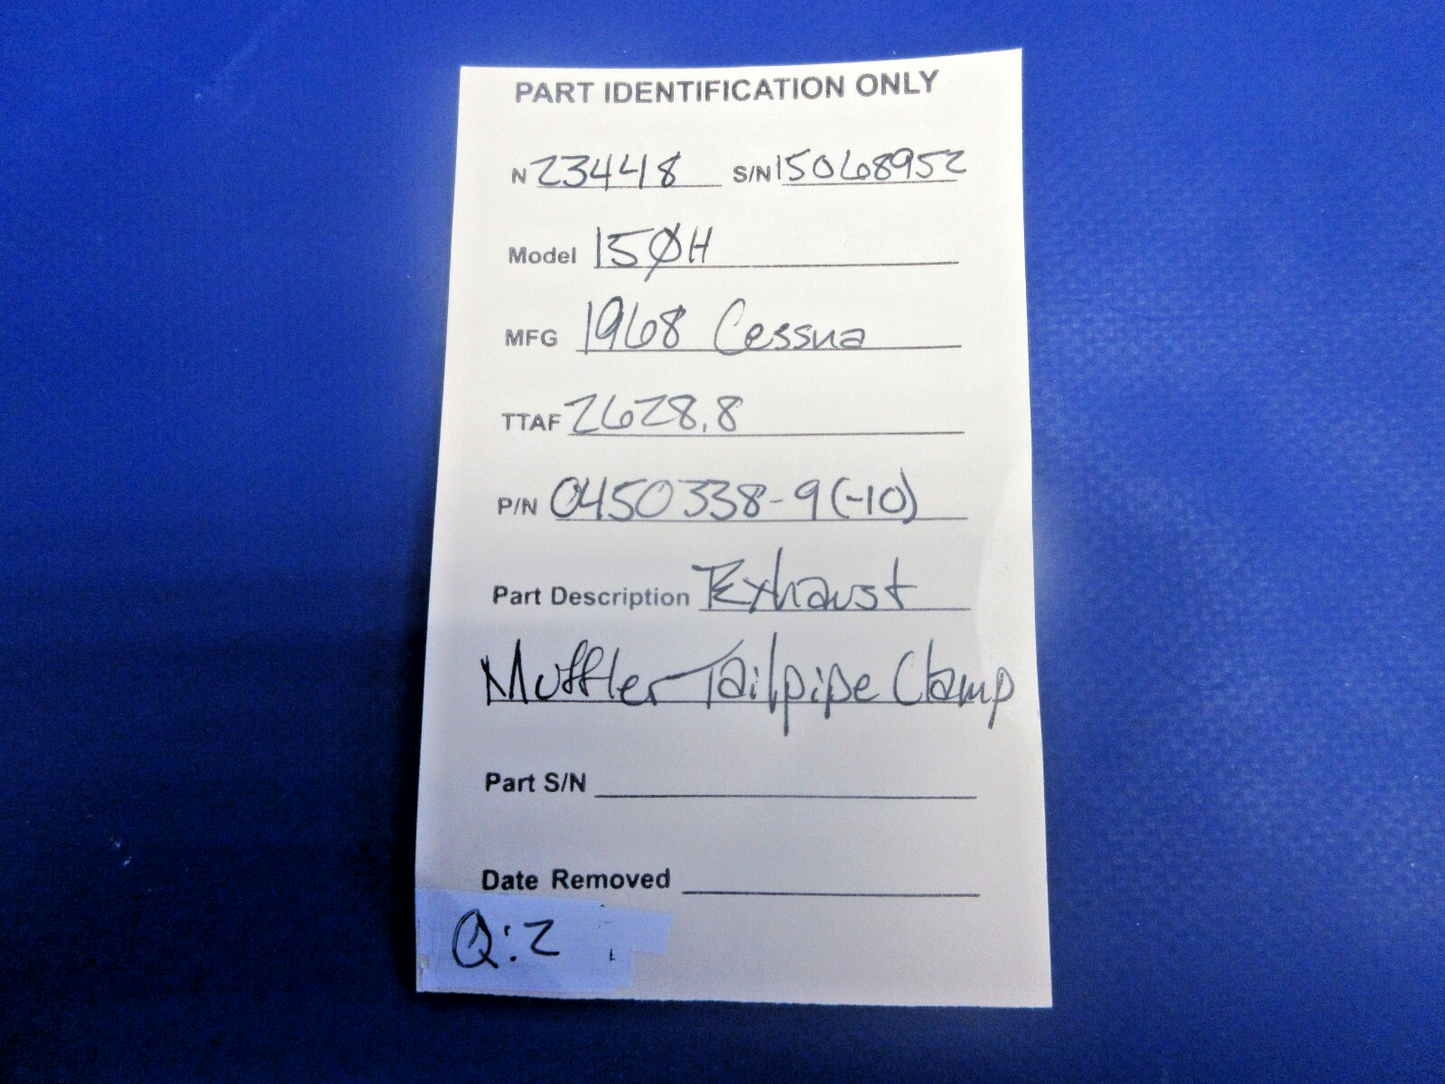 PART IDENTIFICATION ONLY
N 23448 S/N 15068952
Model 150H
MFG 1968 Cessna
TTAF 2628.8
P/N 0450338-9(-10)
Part Description Exhaust
Muffler Tailpipe Clamp
Part S/N
Date Removed
Q:2